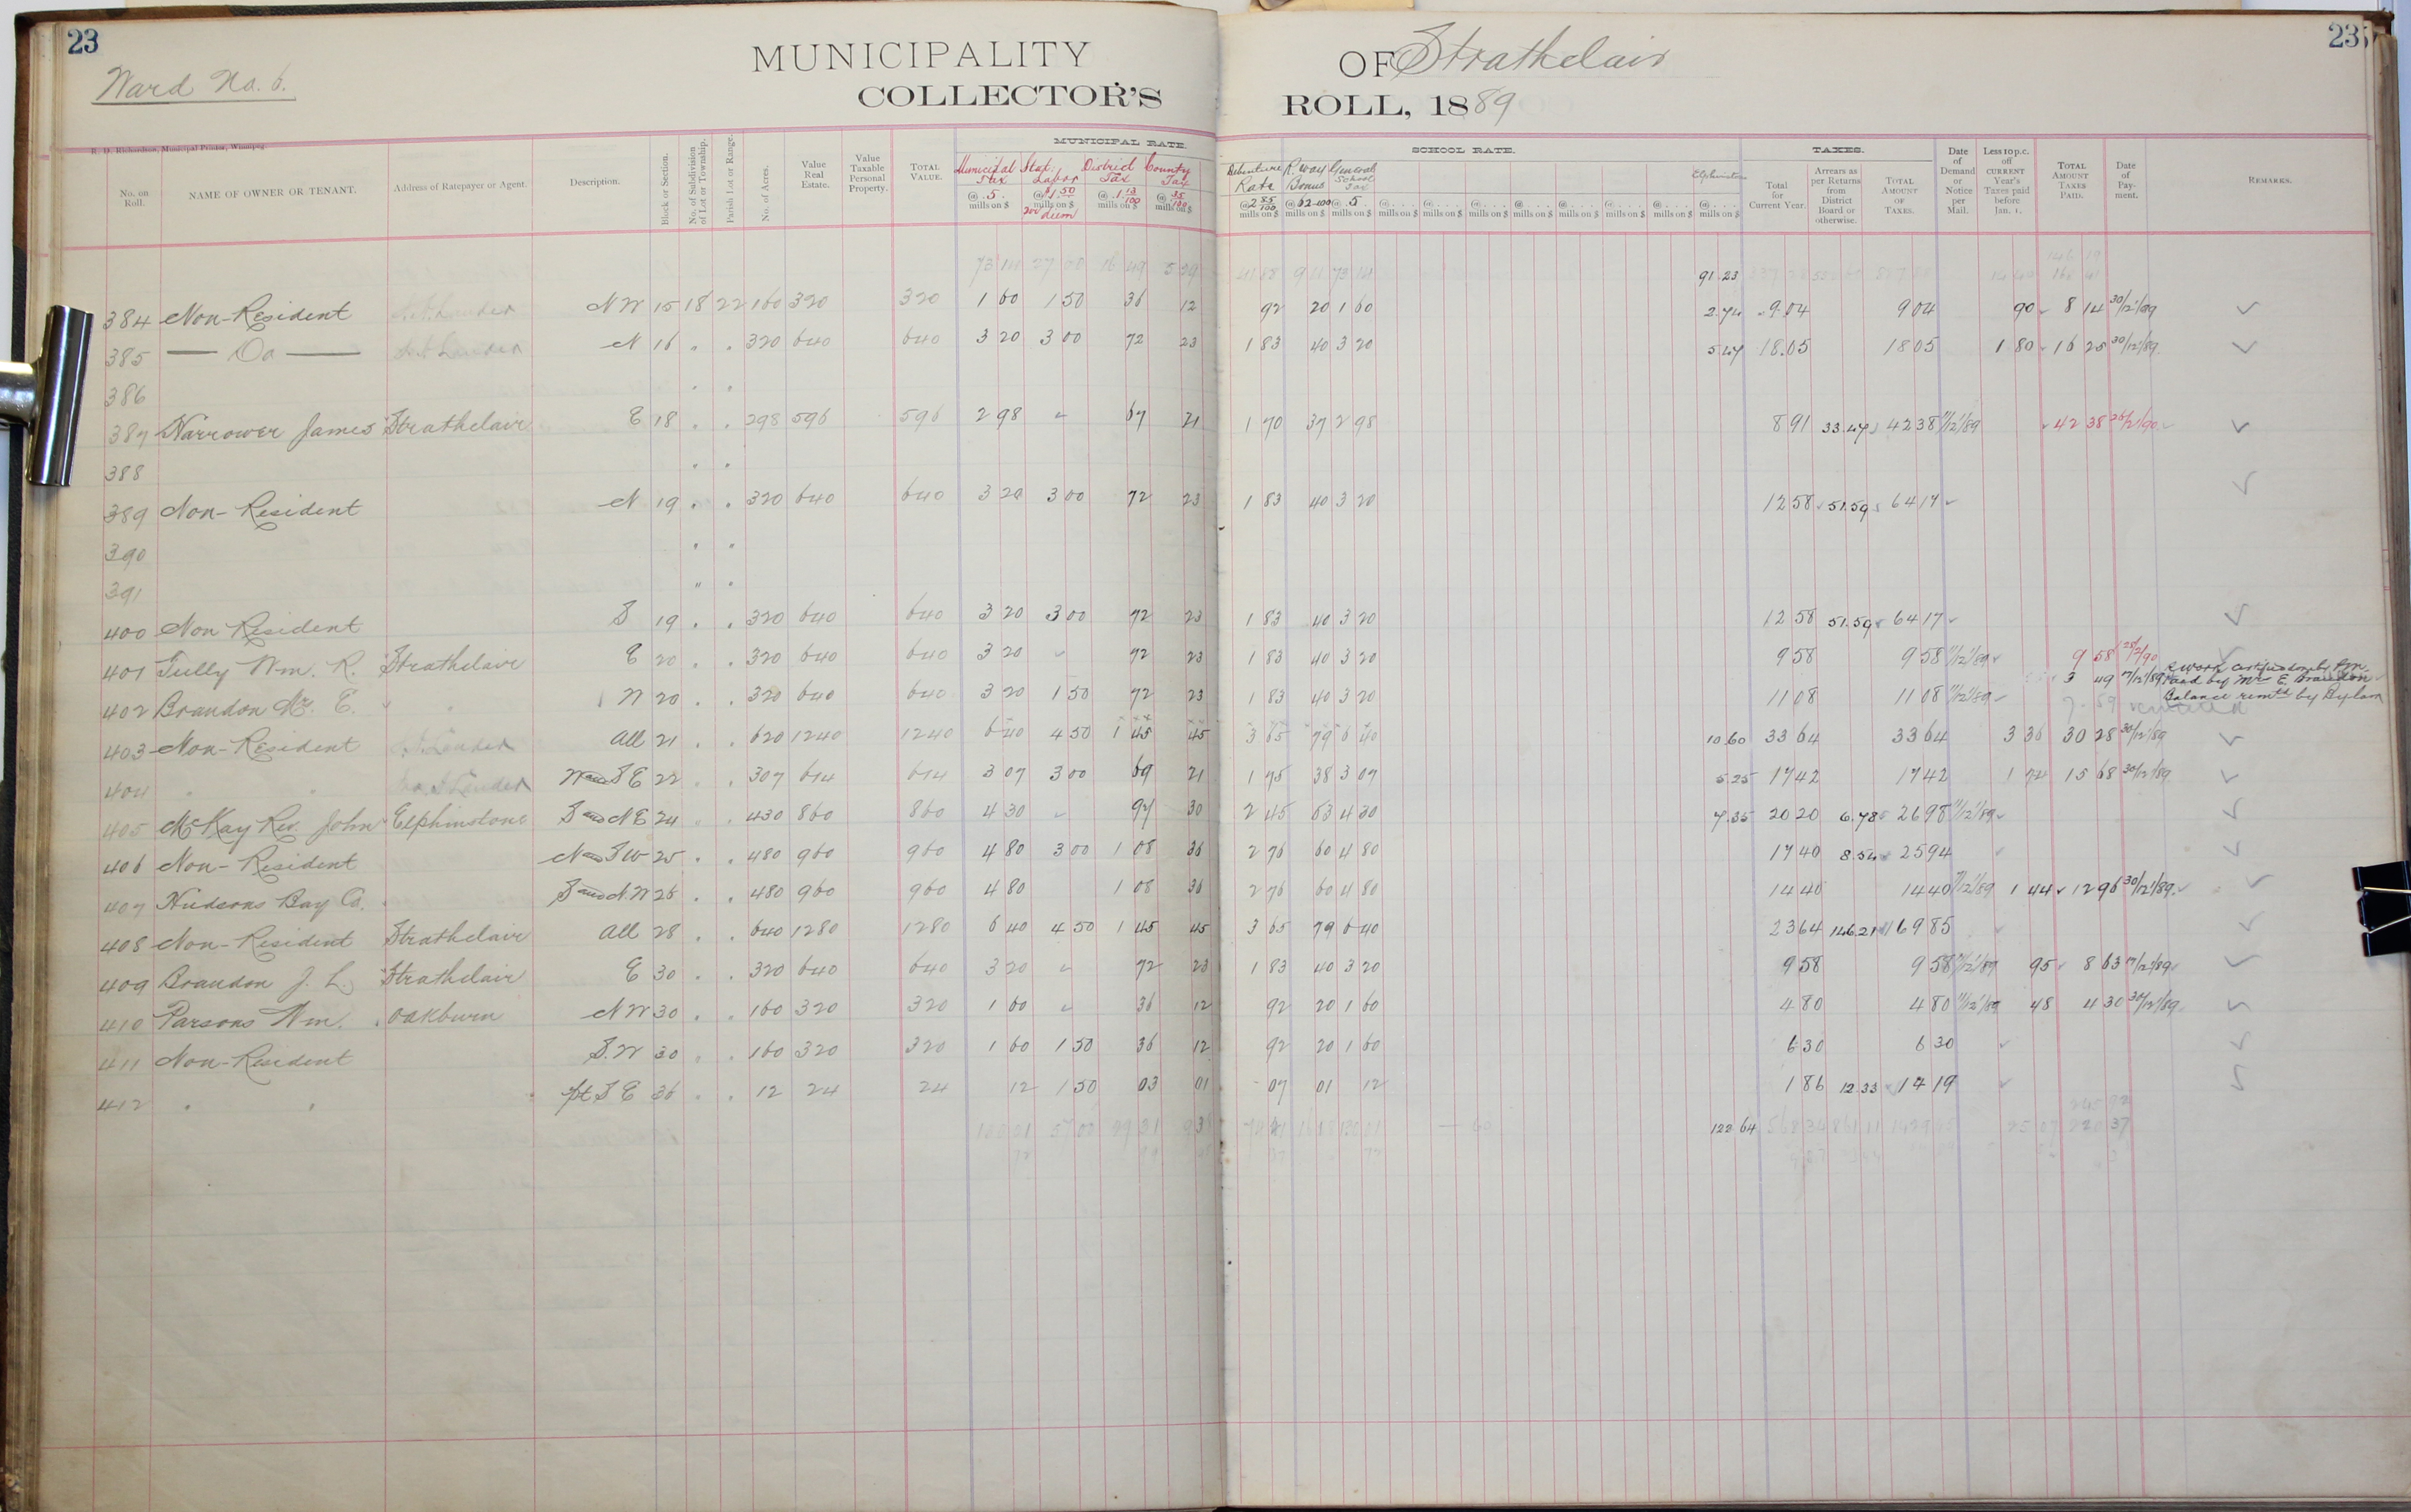 23
23
Ward No. 6.
MUNICIPALITY OF Strathclair
COLLECTOR'S ROLL, 1889
R. D. Richardson, Municipal Printer, Winnipeg
No. on Roll. NAME OF OWNER OR TENANT. Address of Ratepayer or Agent. Description. Block or Section. No. of Subdivision of Lot or Township. Parish Lot or Range. No. of Acres. Value Real Estate. Value Taxable Personal Property. TOTAL VALUE. MUNICIPAL RATE. SCHOOL RATE. TAXES. Date of Demand or Notice per Mail. Less 10 p.c. off CURRENT Year's Taxes paid before Jan. 1. TOTAL AMOUNT TAXES PAID. Date of Payment. REMARKS.
Municipal Tax @ 5 mills on $ Stat. Labor @ $1.50 mills on $ District Tax @ 1 13/100 mills on $ County Tax @ 35/100 mills on $ Debenture Rate @ 2 85/100 mills on $ R. Way Bonus @ 62-100 mills on $ General School Tax @ 5 mills on $ Elphinstone @ mills on $ Total for Current Year. Arrears as per Returns from District Board or otherwise. TOTAL AMOUNT OF TAXES.
91.23
384 Non-Resident NW 15 18 22 160 320 320 1 60 1 50 36 12 92 20 1 60 2.74 9.04 9 04 90 8 14 30/12/89
385 — Do — N 16 " " 320 640 640 3 20 3 00 72 23 1 83 40 3 20 5.47 18.05 18 05 1 80 16 25 30/12/89
386 " "
387 Harrower James Strathclair E 18 " " 298 596 596 2 98 67 21 1 70 37 2 98 8 91 33.47 42 38 11/12/89 42 38 26/2/90
388 " "
389 Non-Resident N 19 " " 320 640 640 3 20 3 00 72 23 1 83 40 3 20 12 58 51.59 64 17
390 " "
391 " "
400 Non Resident S 19 " " 320 640 640 3 20 3 00 72 23 1 83 40 3 20 12 58 51.59 64 17
401 Tully Wm. R. Strathclair E 20 " " 320 640 640 3 20 72 23 1 83 40 3 20 9 58 9 58 11/12/89 9 58 28/2/90
402 Brandon Mr. E. " W 20 " " 320 640 640 3 20 1 50 72 23 1 83 40 3 20 11 08 11 08 11/12/89 3 49 17/12/89 Paid by Mr E. Brandon
Balance remtd by Bylaw
403 Non-Resident All 21 " " 620 1240 1240 6 40 4 50 1 45 45 3 65 79 6 40 10.60 33 64 33 64 3 36 30 28 30/12/89
404 " " W and SE 22 " " 307 614 614 3 07 3 00 69 21 1 75 38 3 07 5.25 17 42 17 42 1 74 15 68 30/12/89
405 McKay Rev. John Elphinstone S and NE 24 " " 430 860 860 4 30 97 30 2 45 53 4 30 7.35 20 20 6.78 26 98 11/12/89
406 Non-Resident N and SW 25 " " 480 960 960 4 80 3 00 1 08 36 2 76 60 4 80 17 40 8.54 25 94
407 Hudsons Bay Co. S and N.W 26 " " 480 960 960 4 80 1 08 36 2 76 60 4 80 14 40 14 40 11/12/89 1 44 12 96 30/12/89
408 Non-Resident Strathclair All 28 " " 640 1280 1280 6 40 4 50 1 45 45 3 65 79 6 40 23 64 146.21 169 85
409 Brandon J. L. Strathclair E 30 " " 320 640 640 3 20 72 23 1 83 40 3 20 9 58 9 58 11/12/89 95 8 63 17/12/89
410 Parsons Wm. Oakburn NW 30 " " 160 320 320 1 60 36 12 92 20 1 60 4 80 4 80 11/12/89 48 4 30 30/12/89
411 Non-Resident S.W 30 " " 160 320 320 1 60 1 50 36 12 92 20 1 60 6 30 6 30
412 " " pt SE 36 " " 12 24 24 12 1 50 03 01 07 01 12 1 86 12.33 14 19
122 64